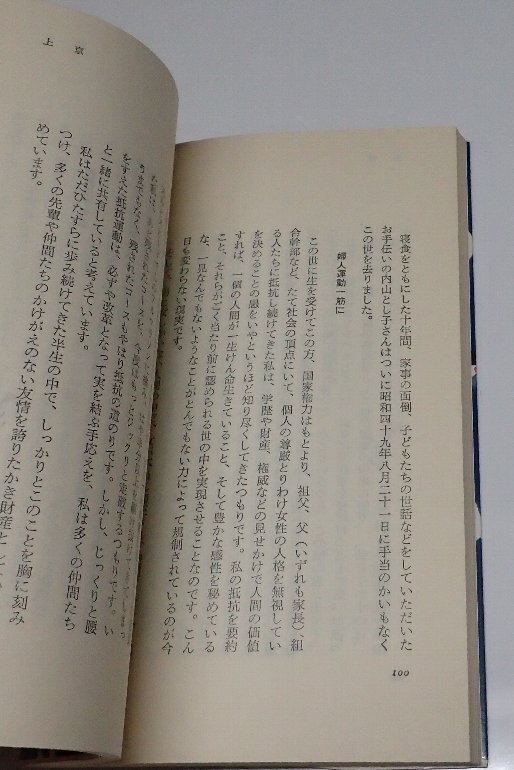 寝食をともにした十年間、家事の面倒、子どもたちの世話などをしていただいた
お手伝いの内山とし子さんはついに昭和四十九年八月二十一日に手当のかいもなく
この世を去りました。
婦人運動一筋に
この世に生を受けてこの方、国家権力はもとより、祖父、父(いずれも家長)、組
合幹部など、たて社会の頂点にいて、個人の尊厳とりわけ女性の人格を無視してい
る人たちに抵抗し続けてきた私は、学歴や財産、権威などの見せかけで人間の価値
を決めることの愚をいやというほど知り尽くしてきたつもりです。私の抵抗を要約
すれば、一個の人間が一生けん命生きていること、そして豊かな感性を秘めている
こと、それらがごく当たり前に認められる世の中を実現させることなのです。こん
な、一見なんでもないようなことがとんでもない力によって規制されているのが今
日も変わらない現実です。
100
上京
うまでもなく、残されたコースもやはり抵抗の道のりです。しかし、じっくりと腰
をすえた抵抗運動は、必ずや改革となって実を結ぶ手応えを、私は多くの仲間たち
と一緒に共有していると考えています。
私はただひたすらに歩み続けてきた半生の中で、しっかりとこのことを胸に刻み
つけ、多くの先輩や仲間たちのかけがえのない友情を誇りたかき財産とし
めています。